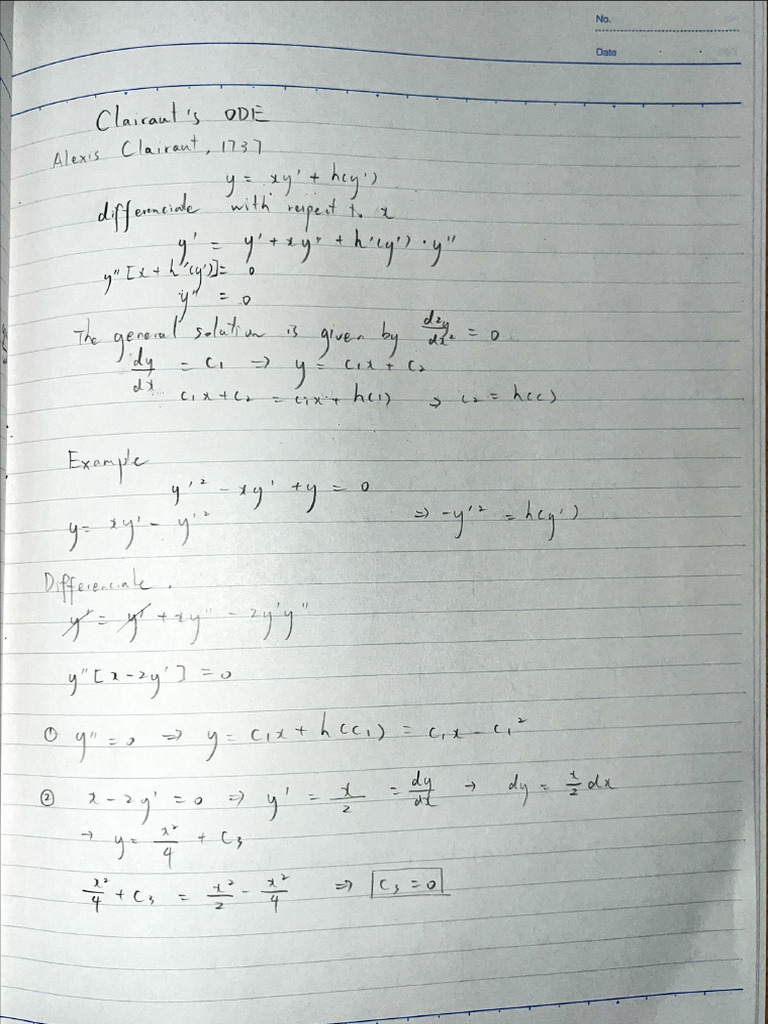 No.
Date
Clairaut's ODE
Alexis Clairaut, 1737
y = xy' + h(y')
differenciate with respect to x
y' = y' + xy'' + h'(y') · y''
y'' [x + h'(y')] = 0
y'' = 0
The general solution is given by d²y/dx² = 0
dy/dx = C₁ ⇒ y = C₁x + C₂
C₁x + C₂ = C₁x + h(C₁) → C₂ = h(C)
Example
y'² - xy' + y = 0
y = xy' - y'² ⇒ -y'² = h(y')
Differenciate.
y' = y' + xy'' - 2y'y''
y'' [x - 2y'] = 0
① y'' = 0 ⇒ y = C₁x + h(C₁) = C₁x - C₁²
② x - 2y' = 0 ⇒ y' = x/2 = dy/dx → dy = x/2 dx
→ y = x²/4 + C₃
x²/4 + C₃ = x²/2 - x²/4 ⇒ C₃ = 0